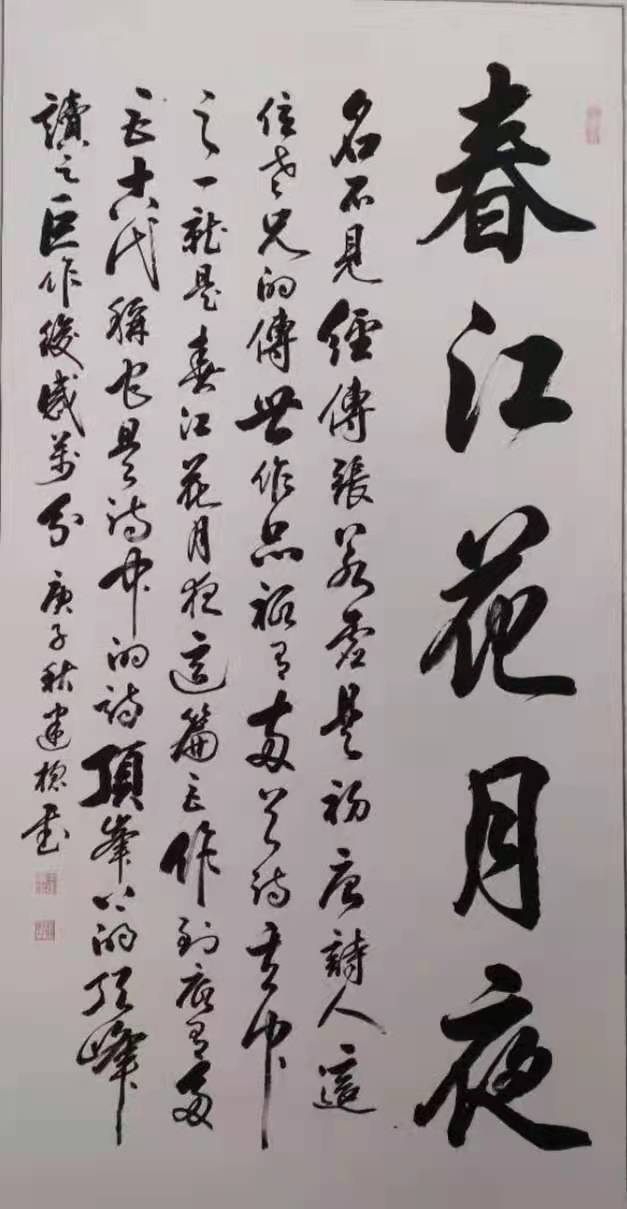 春江花月夜
名不見經傳張若虛是初唐詩人這
位老兄的傳世作品祗有兩首詩其中
之一就是春江花月夜這篇作到底有多
代稱它是诗中的诗頂峯上的顶峰
讀之巨作後感萬分 庚子秋建書